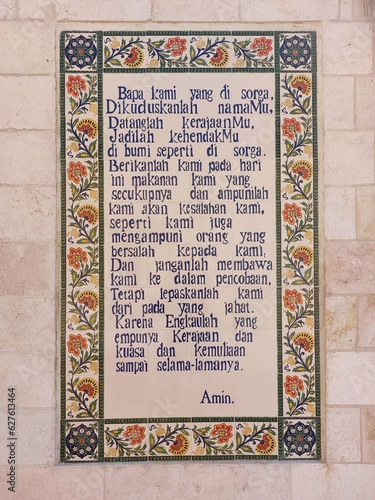 Bapa kami yang di sorga,
Dikuduskanlah namaMu,
Datanglah kerajaanMu,
Jadilah kehendakMu
di bumi seperti di sorga.
Berikanlah kami pada hari
ini makanan kami yang
secukupnya dan ampunilah
kami akan kesalahan kami,
seperti kami juga
mengampuni orang yang
bersalah kepada kami,
Dan janganlah membawa
kami ke dalam pencobaan,
Tetapi lepaskanlah kami
dari pada yang jahat.
Karena Engkaulah yang
empunya Kerajaan dan
kuasa dan kemuliaan
sampai selama-lamanya.
Amin.
Adobe Stock | #627613464